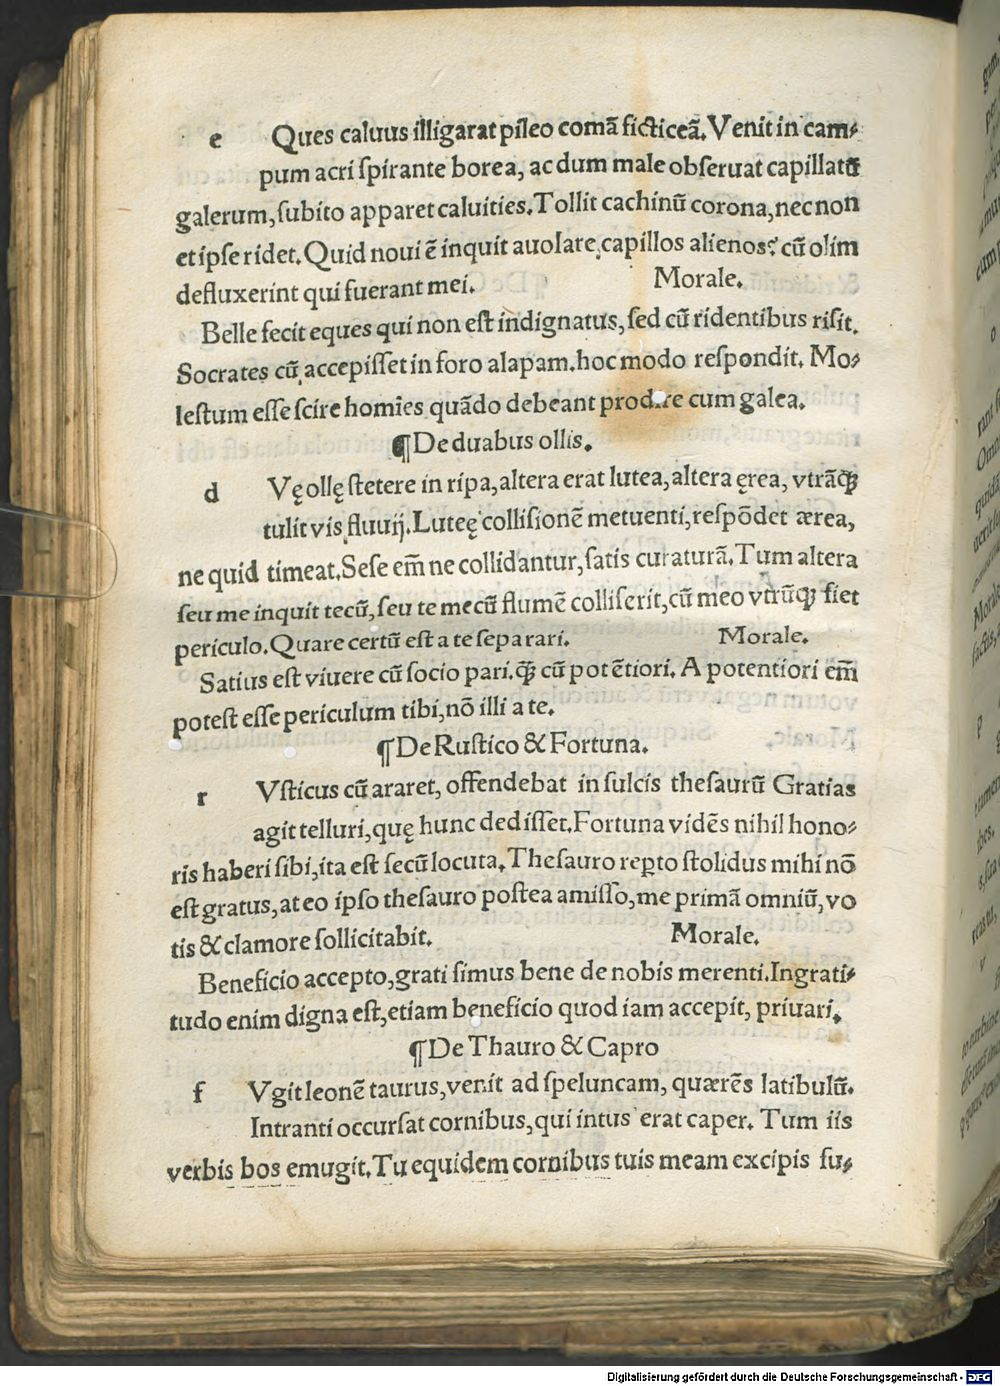 e Ques caluus illigarat pileo comā ficticeā. Venit in cam⸗
pum acri ſpirante borea, ac dum male obſeruat capillatū
galerum, ſubito apparet caluities. Tollit cachinū corona, nec non
et ipſe ridet. Quid noui ē inquit auolare capillos alienos? cū olim
defluxerint qui fuerant mei. Morale.
Belle fecit eques qui non eſt indignatus, ſed cū ridentibus riſit.
Socrates cū accepiſſet in foro alapam. hoc modo reſpondit. Mo⸗
leſtum eſſe ſcire homies quādo debeant prodire cum galea.
¶ De duabus ollis.
d Vę ollę ſtetere in ripa, altera erat lutea, altera ęrea, vtrāqꝫ
tulit vis fluuij. Luteę colliſionē metuenti, reſpōdet ærea,
ne quid timeat. Seſe em̄ ne collidantur, ſatis curaturā. Tum altera
ſeu me inquit tecū, ſeu te mecū flumē colliſerit, cū meo vtrūqꝫ fiet
periculo. Quare certū eſt a te ſeparari. Morale.
Satius eſt viuere cū ſocio pari. qꝫ̄ cū potētiori. A potentiori em̄
poteſt eſſe periculum tibi, nō illi a te.
¶ De Ruſtico & Fortuna.
r Vſticus cū araret, offendebat in ſulcis theſaurū Gratias
agit telluri, quę hunc dediſſet. Fortuna vidēs nihil hono⸗
ris haberi ſibi, ita eſt ſecū locuta. Theſauro reꝑto ſtolidus mihi nō
eſt gratus, at eo ipſo theſauro poſtea amiſſo, me primā omniū, vo
tis & clamore ſollicitabit. Morale.
Beneficio accepto, grati ſimus bene de nobis merenti. Ingrati⸗
tudo enim digna eſt, etiam beneficio quod iam accepit, priuari.
¶ De Thauro & Capro
f Vgit leonē taurus, venit ad ſpeluncam, quærēs latibulū.
Intranti occurſat cornibus, qui intus erat caper. Tum iis
verbis bos emugit. Tu equidem cornibus tuis meam excipis fu⸗
Digitalisierung gefördert durch die Deutsche Forschungsgemeinschaft - DFG